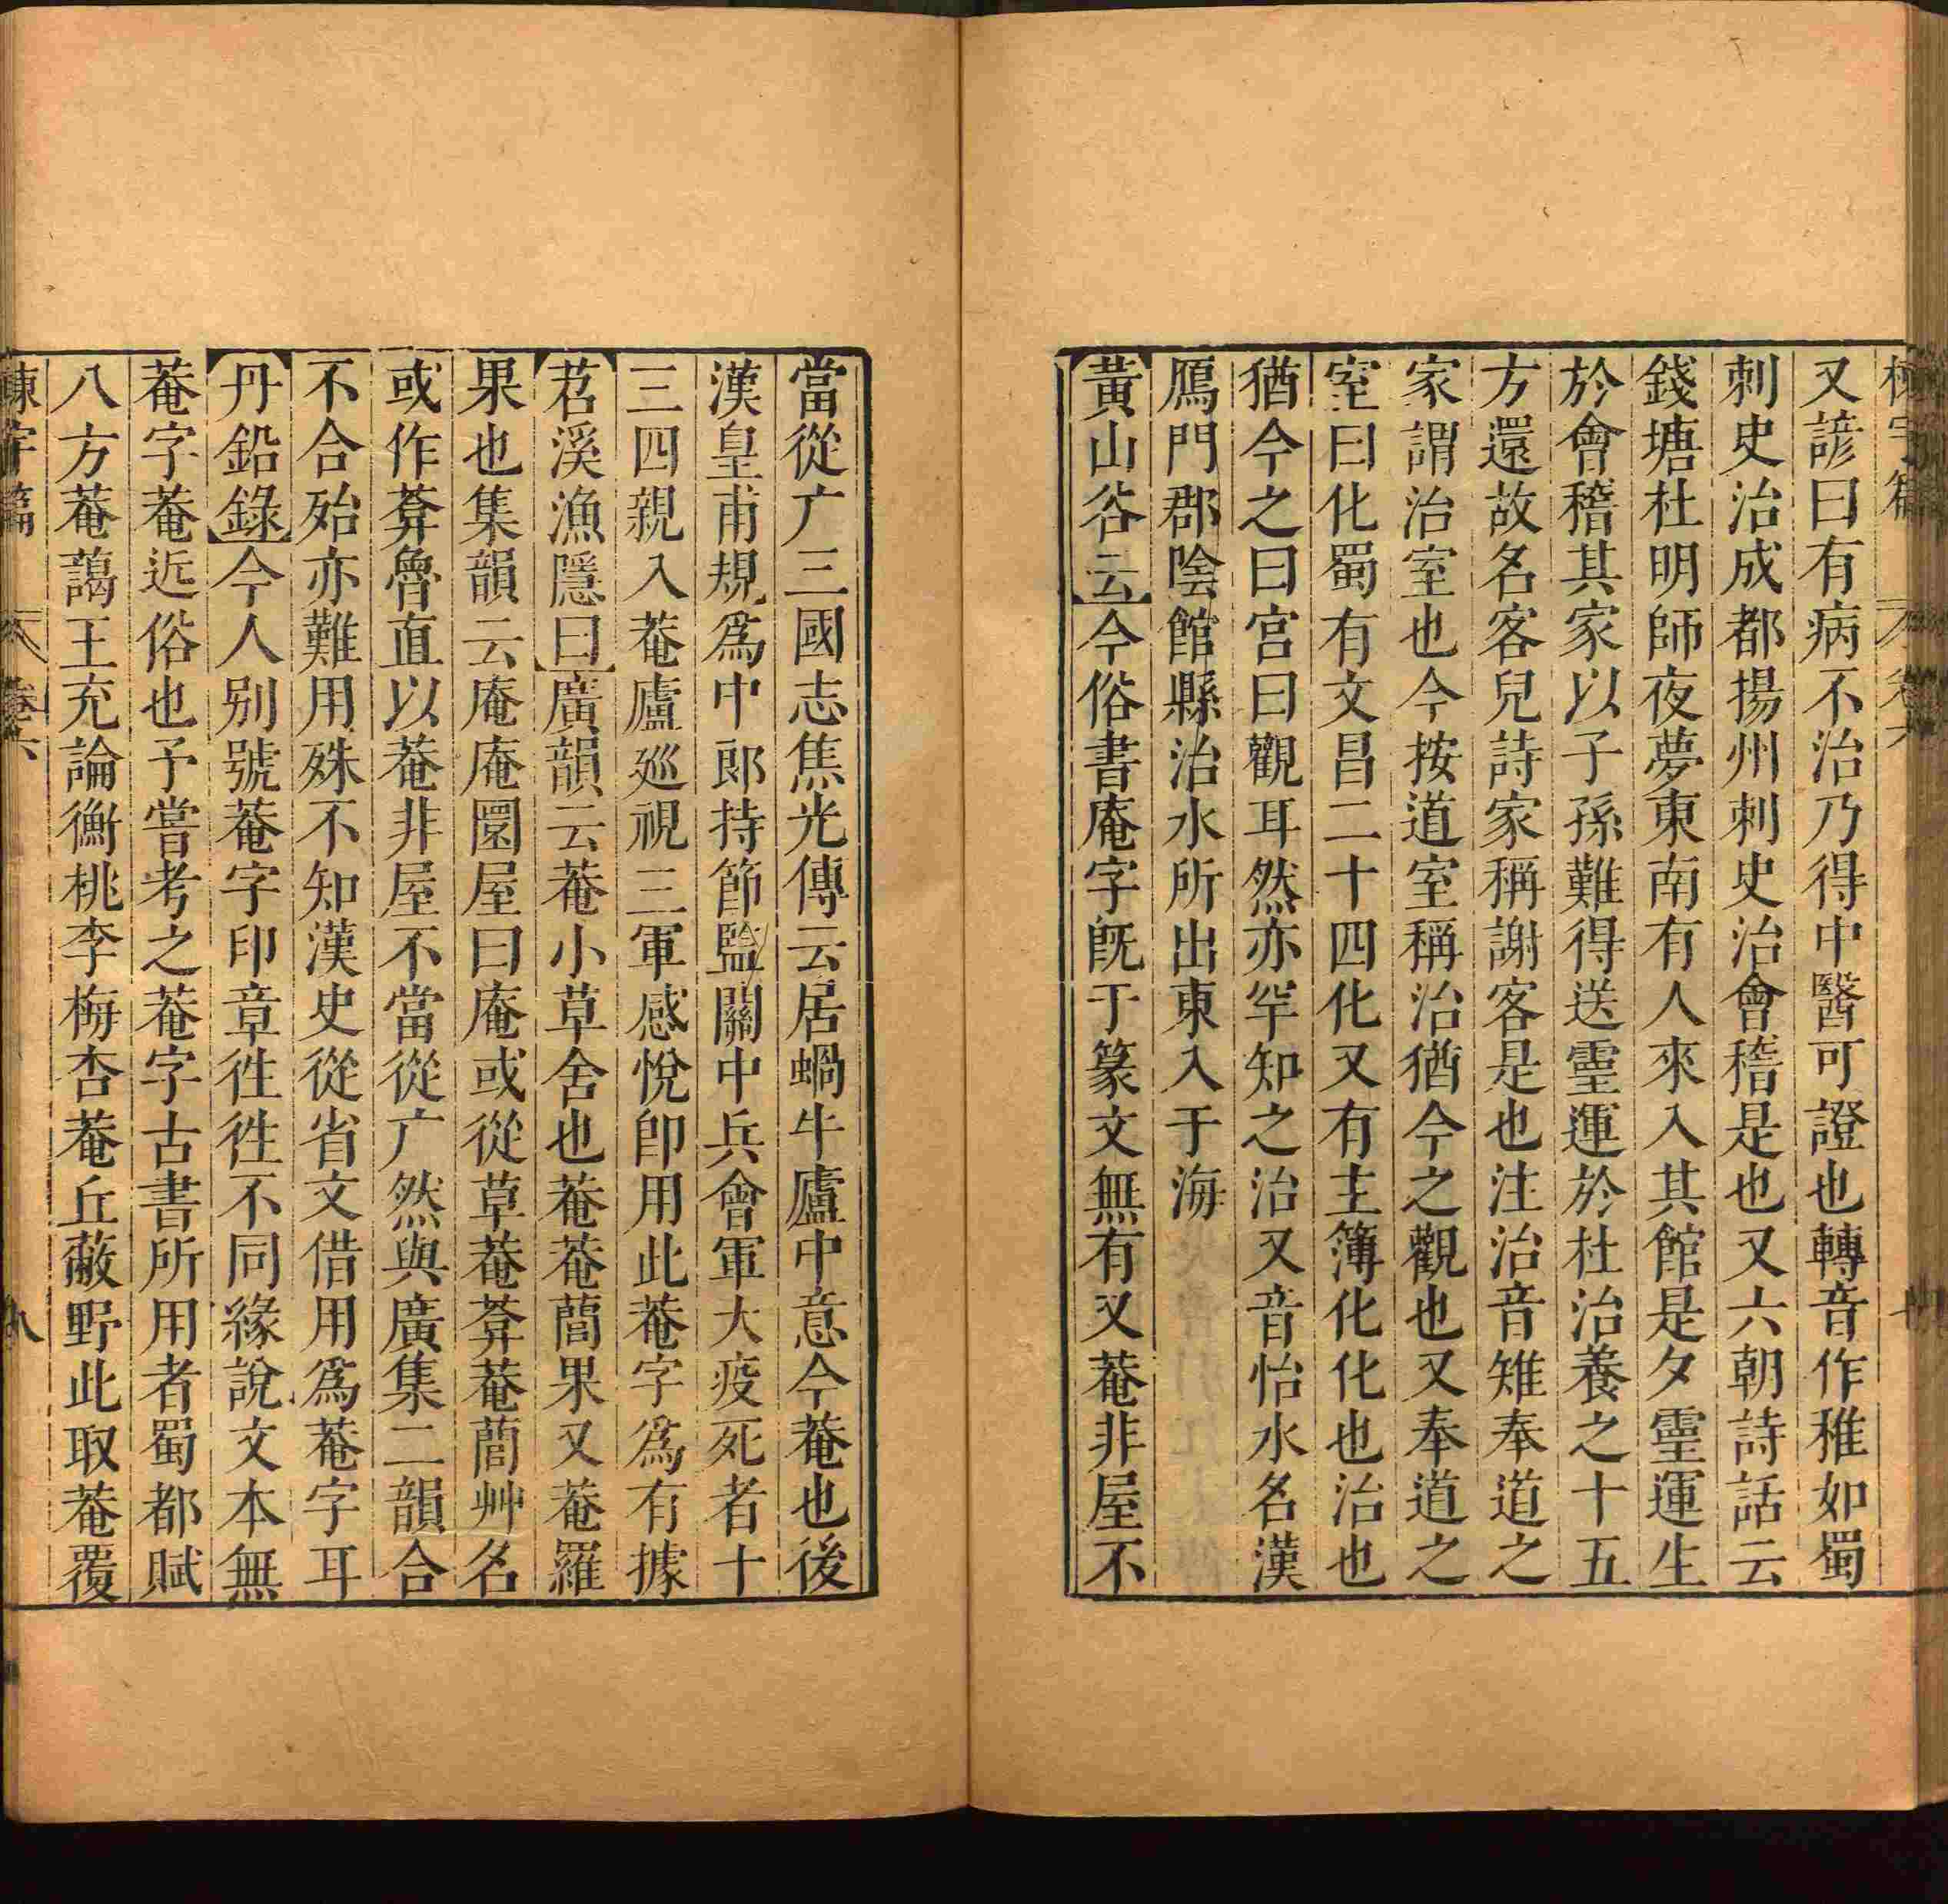 又諺曰有病不治乃得中醫可證也轉音作稚如蜀
刺史治成都揚州刺史治會稽是也又六朝詩話云
錢塘杜明師夜夢東南有人來入其館是夕靈運生
於會稽其家以子孫難得送靈運於杜治養之十五
方還故名客兒詩家稱謝客是也注治音雉奉道之
家謂治室也今按道室稱治猶今之觀也又奉道之
室曰化蜀有文昌二十四化又有主簿化化也治也
猶今之曰宮曰觀耳然亦罕知之治又音怡水名漢
鴈門郡陰館縣治水所出東入于海
黃山谷云今俗書庵字既于篆文無有又菴非屋不
當從广三國志焦光傳云居蝸牛廬中意今菴也後
漢皇甫規爲中郎持節監關中兵會軍大疫死者十
三四親入菴廬巡視三軍感悅卽用此菴字爲有據
苕溪漁隱曰廣韻云菴小草舍也菴菴䕡果又菴羅
果也集韻云庵庵圜屋曰庵或從草菴葊菴䕡艸名
或作葊魯直以菴非屋不當從广然與廣集二韻合
不合殆亦難用殊不知漢史從省文借用爲菴字耳
丹鉛錄今人别號菴字印章徃徃不同緣說文本無
菴字菴近俗也予嘗考之菴字古書所用者蜀都賦
八方菴藹王充論衡桃李梅杏菴丘蔽野此取菴覆